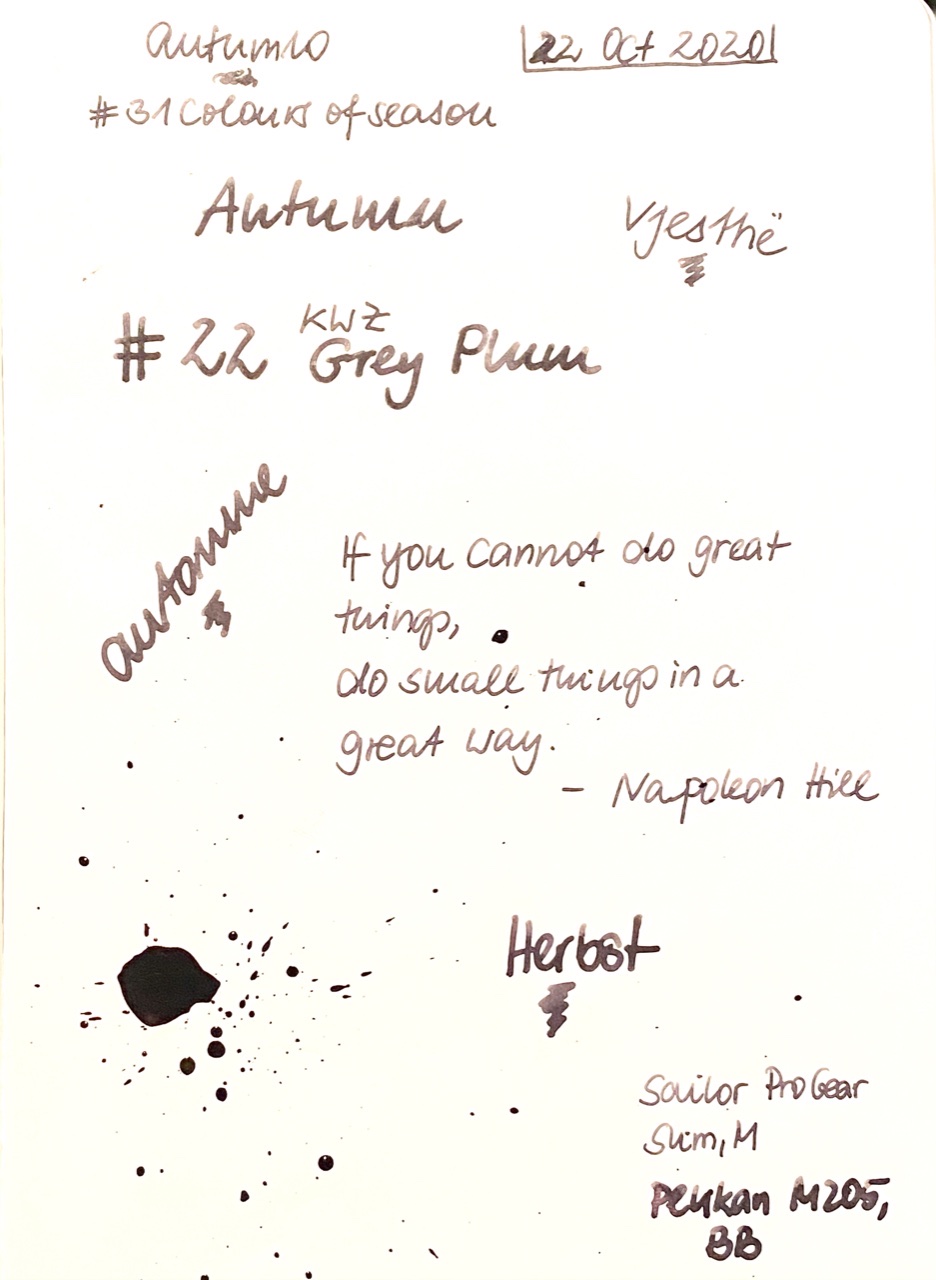 autunno
22 Oct 2020
#31 Colours of season
Autumn
Vjeshtë
#22 KWZ
Grey Plum
automne
If you cannot do great
things,
do small things in a
great way.
- Napoleon Hill
Herbst
Sailor ProGear
Slim, M
Pelikan M205,
BB